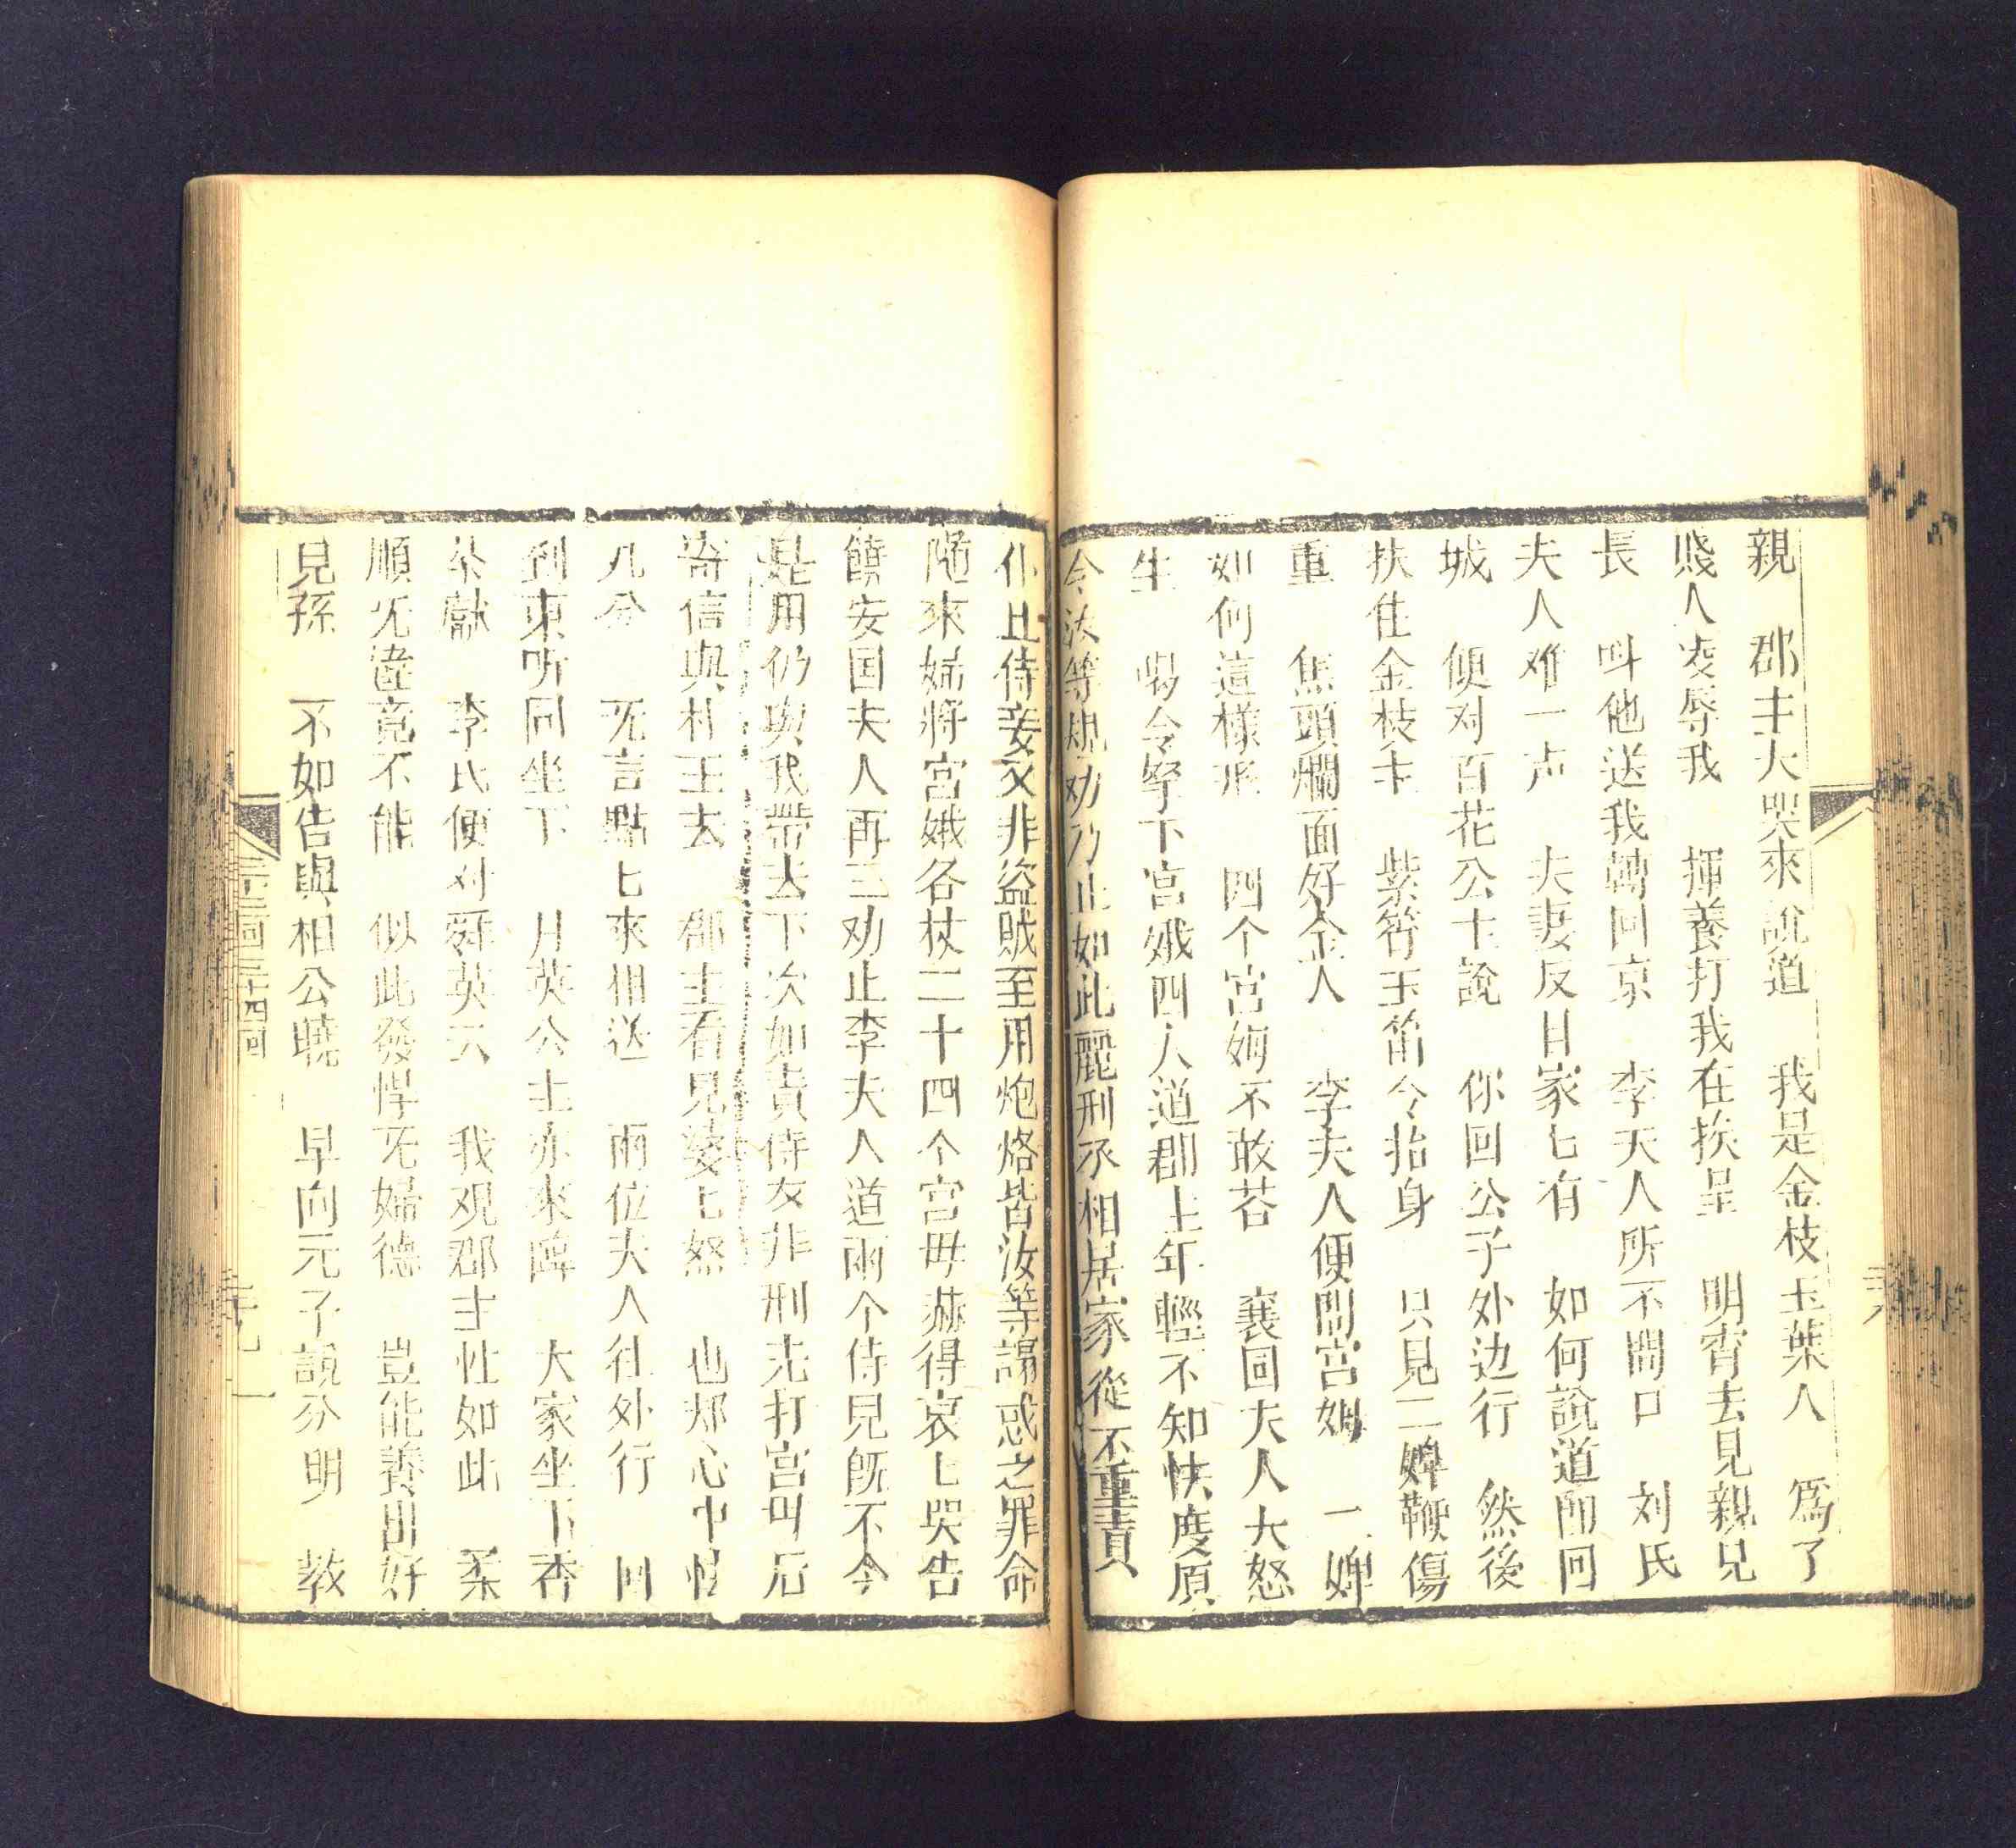 親 郡主大哭來說道 我是金枝玉葉人 爲了
賤人凌辱我 揮養打我在挨呈 明宵去見親兄
長 叫他送我轉回京 李夫人所不開口 刘氏
夫人难一声 夫妻反目家七有 如何說道卽回
城 便对百花公主說 你回公子外边行 然後
扶住金枝主 紫符玉笛令抬身 只見二婢鞭傷
重 焦頭爛面好金人 李夫人便問宮姆 一婢
如何這樣形 四个宮姆不敢荅 襄囯夫人大怒
生 喝令拏下宮娥四人道郡主年輕不知忲度原
令汝等規劝乃止如此麗刑丞相居家從不重責
仆且侍妾又非盜賊至用炮烙皆汝等謟惑之罪命
随來婦將宮娥各杖二十四个宮毋赫得哀七哭告
饒安国夫人再三劝止李夫人道兩个侍見旣不令
是用仍與我帶去下次如責侍女非刑先打宮叫后
寄信與朴王去 郡主看見婆七怒 也郏心中怯
九分 旡言點七來相送 兩位夫人往外行 回
到東听同坐下 月英公主亦來陣 大家坐下香
茶獻 李氏便对舜英云 我观郡主性如此 柔
順旡違竟不能 似此發悍旡婦德 豈能養出好
見孫 不如告與相公曉 早向元子說分明 教
三十三回 三十四回